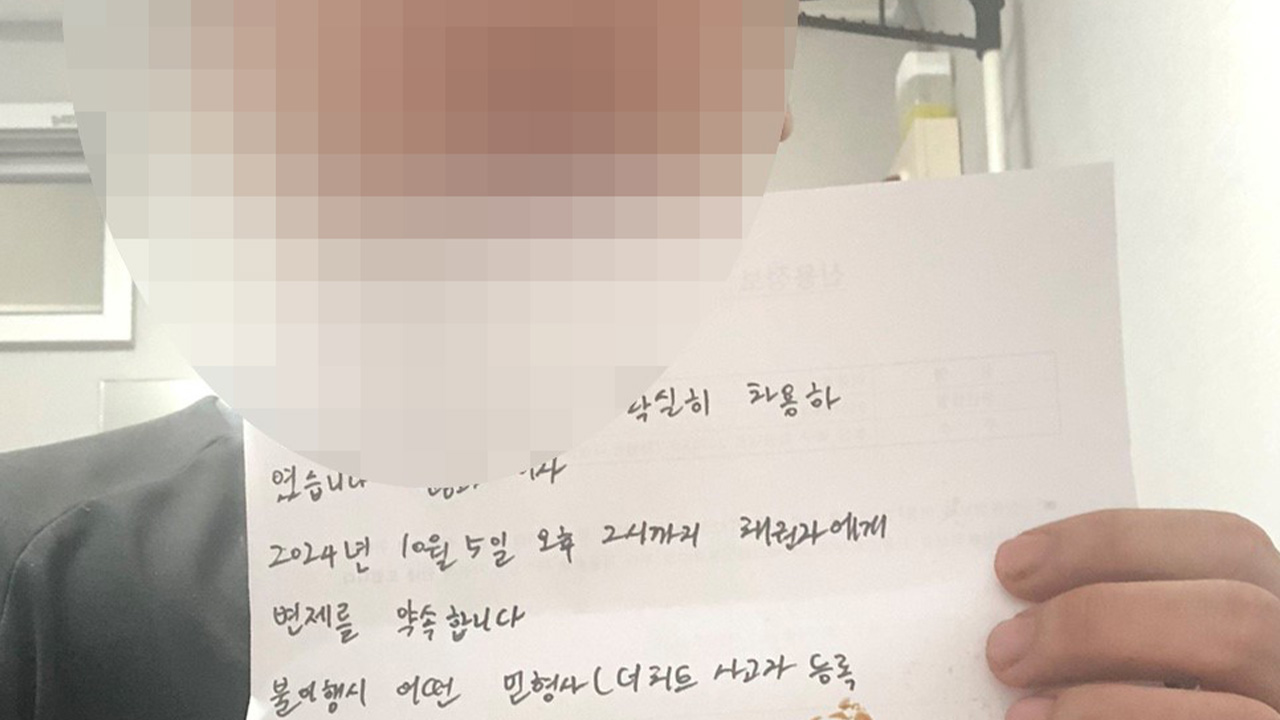 확실히 차용하
였습니다
2024년 10월 5일 오후 2시까지 채권자에게
변제를 약속합니다
불이행시 어떤 민형사(더치트 사고자 등록